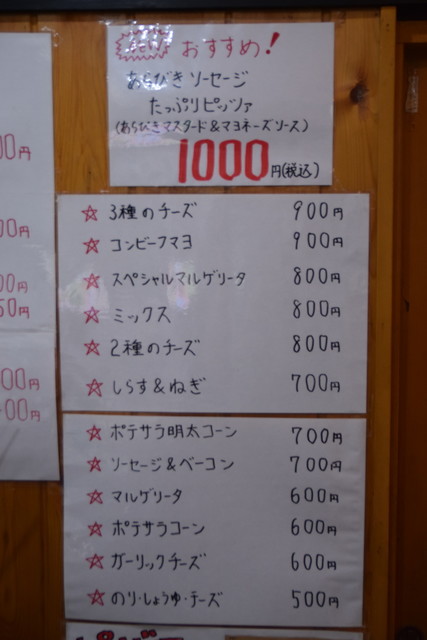 おすすめ!
あらびきソーセージ
たっぷりピッツァ
(あらびきマスタード&マヨネーズソース)
1000円(税込)
☆ 3種のチーズ 900円
☆ コンビーフマヨ 900円
☆ スペシャルマルゲリータ 800円
☆ ミックス 800円
☆ 2種のチーズ 800円
☆ しらす&ねぎ 700円
☆ ポテサラ明太コーン 700円
☆ ソーセージ&ベーコン 700円
☆ マルゲリータ 600円
☆ ポテサラコーン 600円
☆ ガーリックチーズ 600円
☆ のり・しょうゆ・チーズ 500円
00円
00円
00円
50円
00円
00円